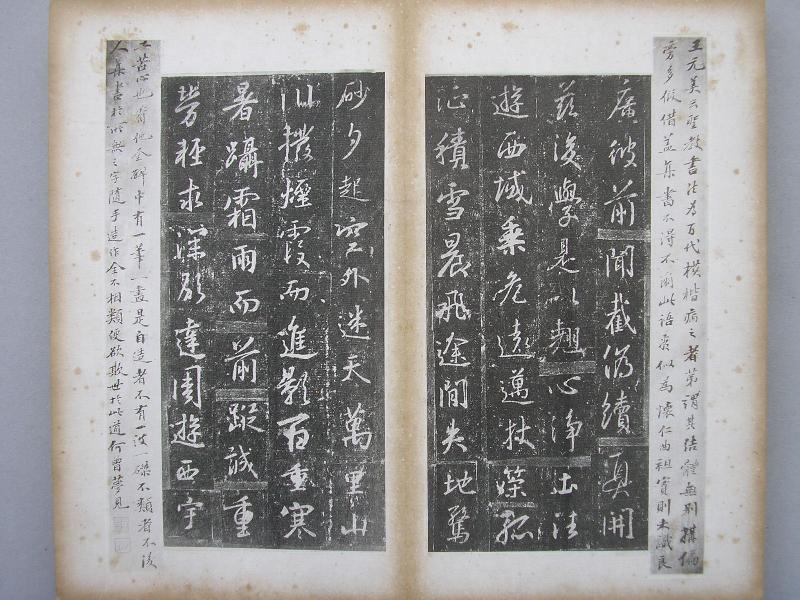 王元美云聖教書法為百代模楷病之者第謂其結體無別搆偏
旁多假借蓋集書不得不爾此語似為懷仁曲袒實則未識良
廣彼前聞截偽續真開
茲後學是以翹心淨土往
遊西域乘危遠邁杖策孤
征積雪晨飛途間失地驚
砂夕起空外迷天萬里山
川撥煙霞而進影百重寒
暑躡霜雨而前蹤誠重
勞輕求深願達周遊西宇
工苦心也看他全碑中有一筆一畫是自造者不有一波一磔不類者不後
人集書於所無之字隨手造作全不相類硬欲欺世於此道何曾夢見